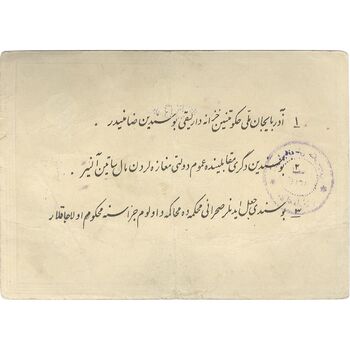 ۱ آذربایجان ملی حکومتنین خزانه دارلیقی بو سندین ضامنیدر.
۲ بو سندین دگری مقابلینده عموم دولتی مغازه لردن مال ساتین آلنیر
۳ بو سندی جعل ایدنلر صحرائی محکمه ده محاکمه و اولوم جزاسنه محکوم اولاجاقلار